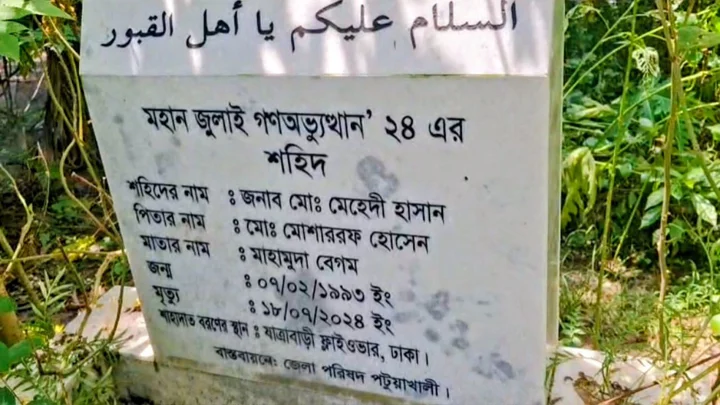 السلام عليكم يا أهل القبور
মহান জুলাই গণঅভ্যুত্থান' ২৪ এর
শহিদ
শহিদের নাম : জনাব মোঃ মেহেদী হাসান
পিতার নাম : মোঃ মোশাররফ হোসেন
মাতার নাম : মাহামুদা বেগম
জন্ম : ০৭/০২/১৯৯৩ ইং
মৃত্যু : ১৮/০৭/২০২৪ ইং
শাহাদাত বরণের স্থান : যাত্রাবাড়ী ফ্লাইওভার, ঢাকা।
বাস্তবায়নে: জেলা পরিষদ পটুয়াখালী।